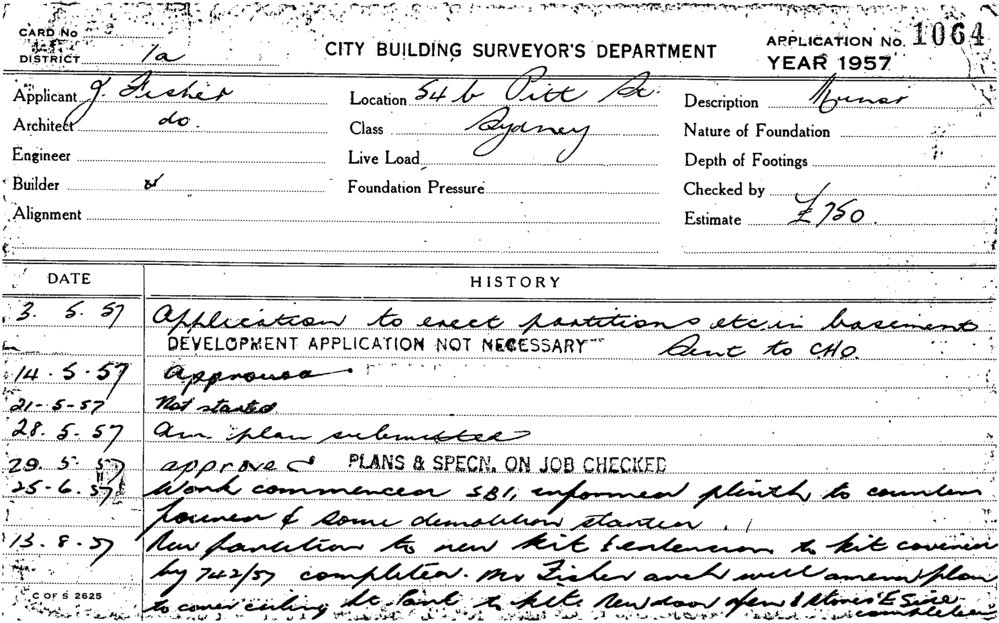 CARD No
DISTRICT 1a
CITY BUILDING SURVEYOR'S DEPARTMENT
APPLICATION No. 1064
YEAR 1957
Applicant J. Fisher
Location 54 b Pitt St.
Description
Architect do.
Class Sydney
Nature of Foundation
Engineer
Live Load
Depth of Footings
Builder
Foundation Pressure
Checked by
Alignment
Estimate £750.
DATE HISTORY
3. 5. 57 Application to erect partitions etc in basement
DEVELOPMENT APPLICATION NOT NECESSARY Sent to CHO.
14. 5. 57 Approved.
21-5-57 Not started
28. 5. 57 Am. plan submitted
29. 5. 57 approved PLANS & SPECN. ON JOB CHECKED
25-6.57 Work commenced SBI, informed plinth to counters
poured & some demolition started.
13. 8. 57 New partition to new kit & extension to kit covered
by 742/57 completed. Mr Fisher arch will amend plan
to cover ceiling ht New door
C OF S 2625
completed